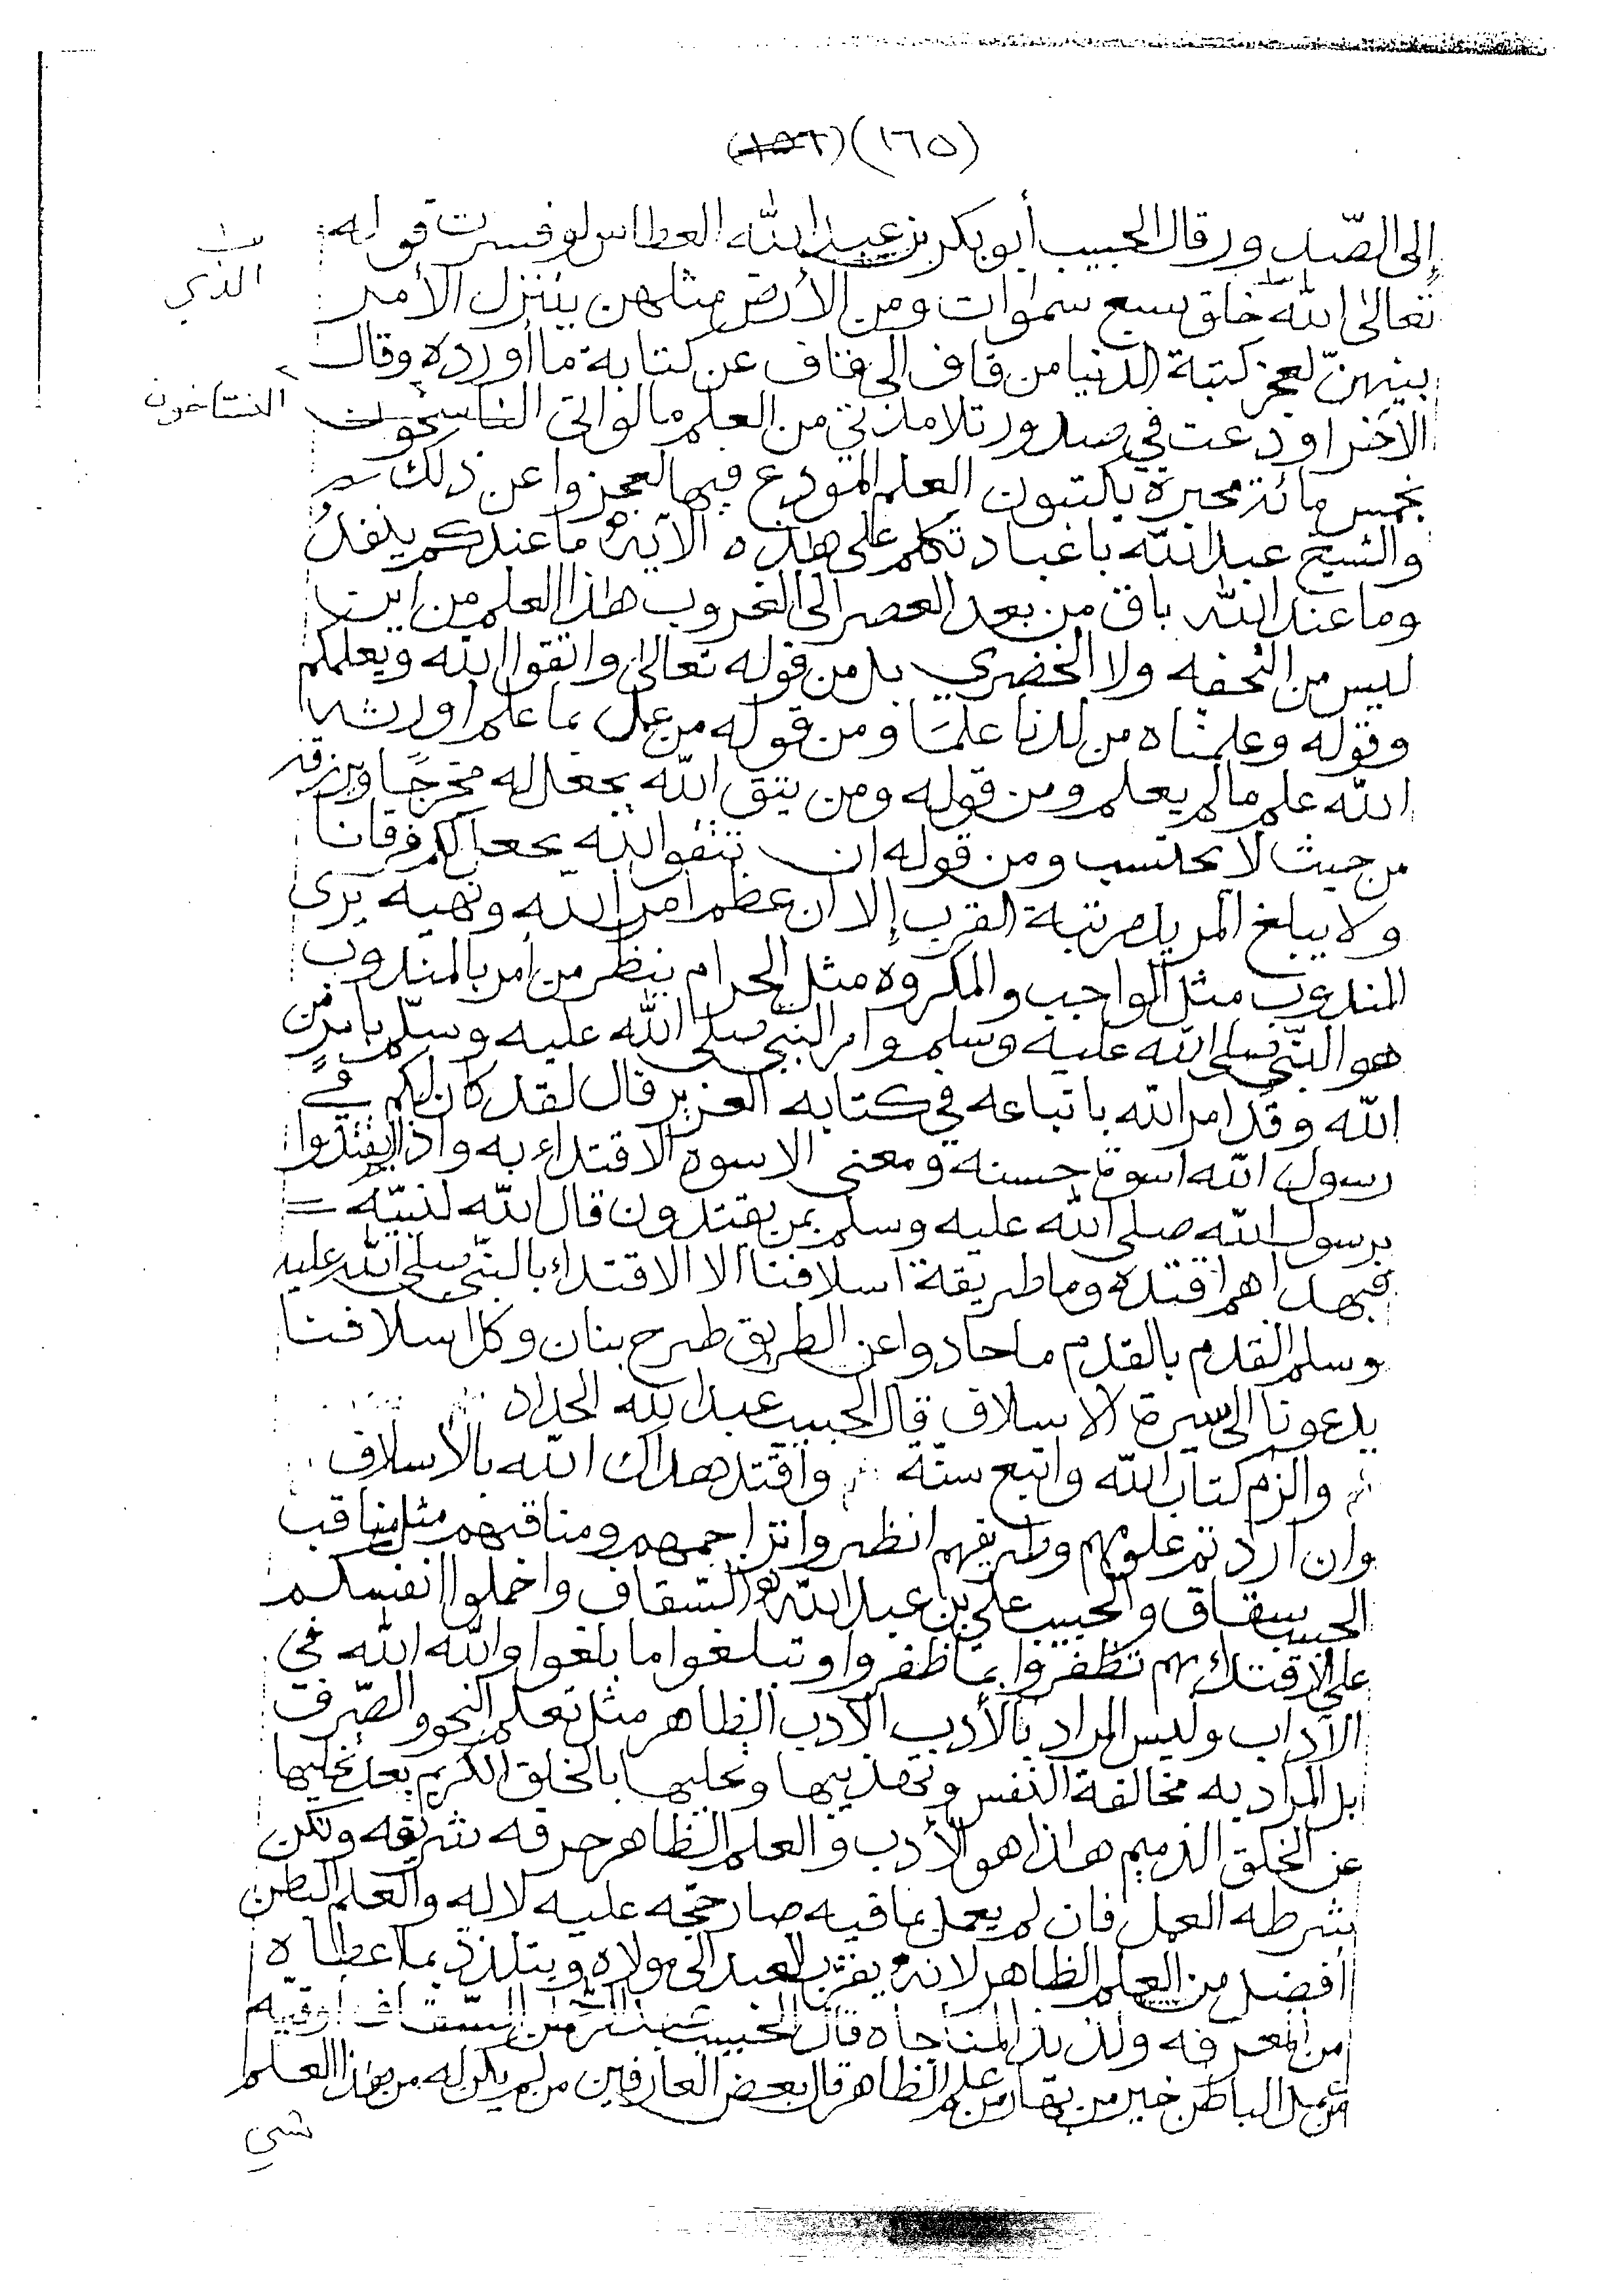 (١٦٥) (١٥٦)
إلى الصّدور قال الحبيب أبو بكر بن عبد الله العطاس لو فسرت قوله
الذي
تعالى الله خلق سبع سموات ومن الأرض مثلهن يتنزل الأمر
بينهنّ لعجز كتبة الدنيا من قاف الى قاف عن كتابة ما أورده وقال
النساخون
الآخر اودعت في صدور تلامذتي من العلم ما لو اتى الناسخون
بخمس مائة محبرة يكتبون العلم المودع فيها لعجزوا عن ذلك
والشيخ عبد الله باعباد تكلم على هذه الآية ما عندكم ينفدُ
وما عند الله باق من بعد العصر الى الغروب هذا العلم من اين
ليس من التحفه ولا الخضري بل من قوله تعالى واتقوا الله ويعلمكم
وقوله وعلمناه من لدنا علمًا ومن قوله من عمل بما علم اورثه
الله علم ما لم يعلم ومن قوله ومن يتق الله يجعل له مخرجًا ويرزقه
من حيث لا يحتسب ومن قوله ان تتقوا الله يجعل لكم فرقانا
ولا يبلغ المريد مرتبة القرب إلا ان عظم امر الله ونهيه يرى
المندوب مثل الواجب والمكروه مثل الحرام ينظر من أمر بالمندوب
هو النبّي صلى الله عليه وسلم وامر النبّي صلى الله عليه وسلّم بامر من
الله وقد امر الله باتباعه في كتابه العزيز قال لقد كان لكم في
رسول الله اسوة حسنه ومعنى الاسوه الاقتداء به واذا لم يقتدوا
برسول الله صلى الله عليه وسلم بمن يقتدون قال الله لنبيّه =
فبهداهم اقتده وما طريقة اسلافنا الا الاقتداء بالنبّي صلى الله عليه
وسلم القدم بالقدم ما حادوا عن الطريق طرح بنان وكل اسلافنا
يدعونا الى سيرة الاسلاف قال الحبيب عبد الله الحداد
والزم كتاب الله واتبع سنّة واقتد هداك الله بالأسلاف
وان اردتم علومهم وطريقهم انظروا تراجمهم ومناقبهم مثل مناقب
الحبيب سقاف والحبيب علي بن عبد الله السّقاف واحملوا انفسكم
على الاقتداء بهم تظفروا بما ظفروا وتبلغوا ما بلغوا والله الله في
الآداب وليس المراد بالأدب الأدب الظاهر مثل تعلم النحو والصّرف
بل المراد به مخالفة النفس وتهذيبها وتحليها بالخلق الكريم بعد تخليها
عن الخلق الذميم هذا هو الأدب والعلم الظاهر حرفه شريفه ولكن
شرطه العمل فان لم يعمل بما فيه صار حجّه عليه لا له والعلم الباطن
أفضل من العلم الظاهر لانه يقرّب العبد الى مولاه ويتلذذ بما اعطاه
من المعرفه ولذيذ المناجاه قال الحبيب عبد الرحمن السّقاف أوقيه
من عمل الباطن خير من بهار من علم الظاهر قال بعض العارفين من لم يكن له من هذا العلم
شي